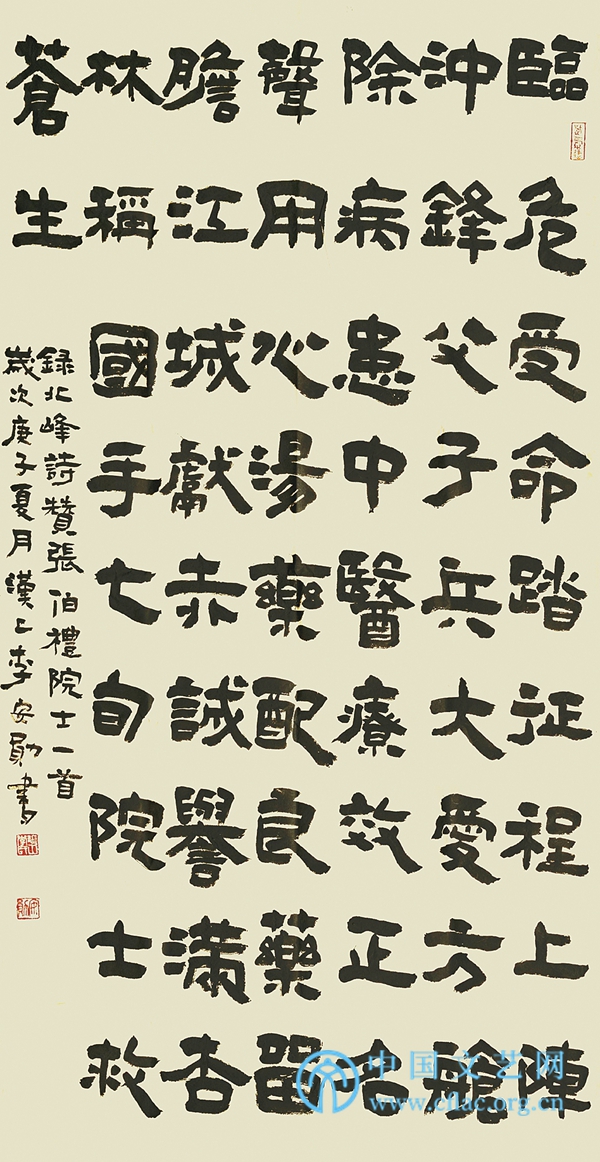 臨危受命踏征程上陣
沖鋒父子兵大愛方艙
除病患中醫療效正名
聲用心湯藥配良藥留
膽江城獻赤誠譽滿杏
林稱國手七旬院士救
蒼生
錄北峰詩贊張伯禮院士一首
歲次庚子夏月漢上李安勛書
中国文艺网
www.cflac.org.cn